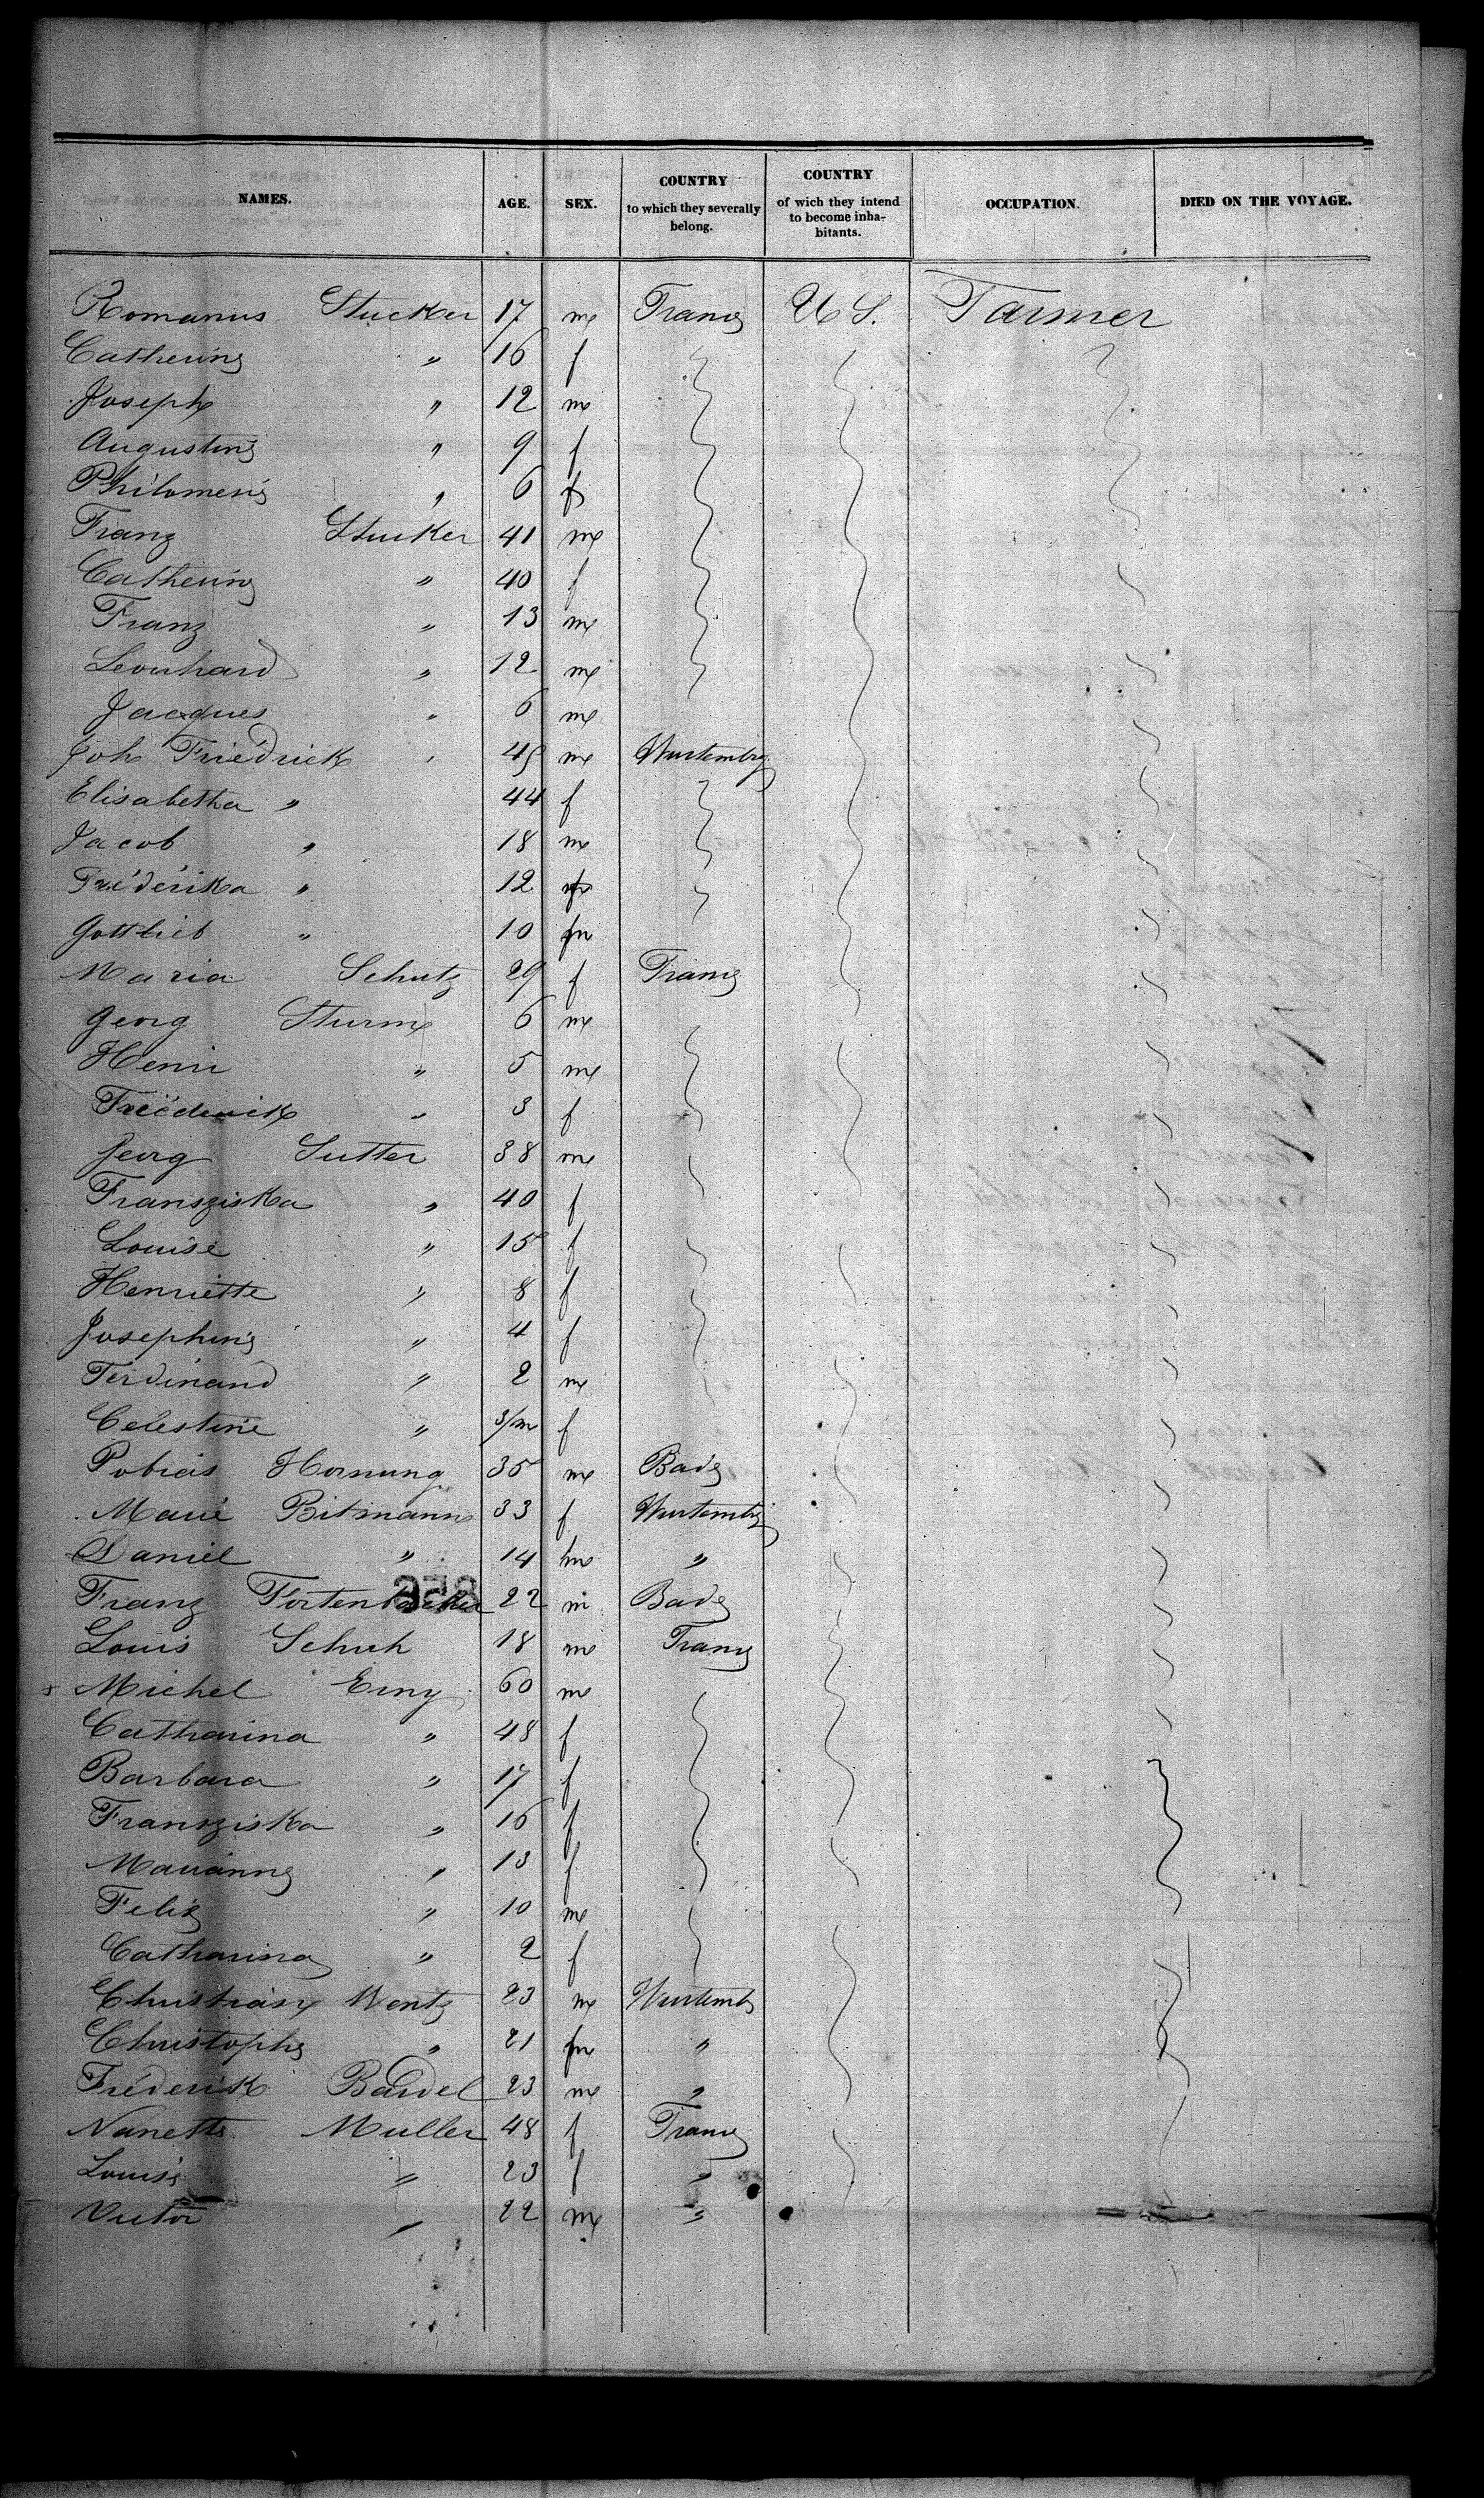 NAMES. AGE. SEX. COUNTRY to which they severally belong. COUNTRY of wich they intend to become inhabitants. OCCUPATION. DIED ON THE VOYAGE.
Romanus Stucker 17 m France U S. Farmer
Catherine " 16 f
Joseph " 12 m
Augustine " 9 f
Philomene " 6 f
Franz Stucker 41 m
Catherine " 40 f
Franz " 13 m
Leonhard " 12 m
Jacques " 6 m
Joh Friedrick " 45 m Wurtembg
Elisabetha " 44 f
Jacob " 18 m
Fréderika " 12 f
Gottlieb " 10 m
Maria Schutz 29 f France
Georg Sturm 6 m
Henri " 5 m
Fréederick " 3 f
Georg Sutter 38 m
Fransziska " 40 f
Louise " 15 f
Henriette " 8 f
Josephine " 4 f
Ferdinand " 2 m
Celestine " 3/m f
Tobias Hornung 35 m Bade
Marie Bitmann 33 f Wurtembg
Daniel " 14 m "
378
Franz 22 m Bade
Louis Schuh 18 m France
Michel Erny 60 m
Catharina " 48 f
Barbara " 17 f
Fransziska " 16 f
Marianne " 13 f
Felix " 10 m
Catharina " 2 f
Christian Wentz 23 m Wurtemb
Christophe " 21 m "
Fréderik Bardel 23 m "
Nanette Muller 48 f France
Louise " 23 f "
Victor " 22 m "